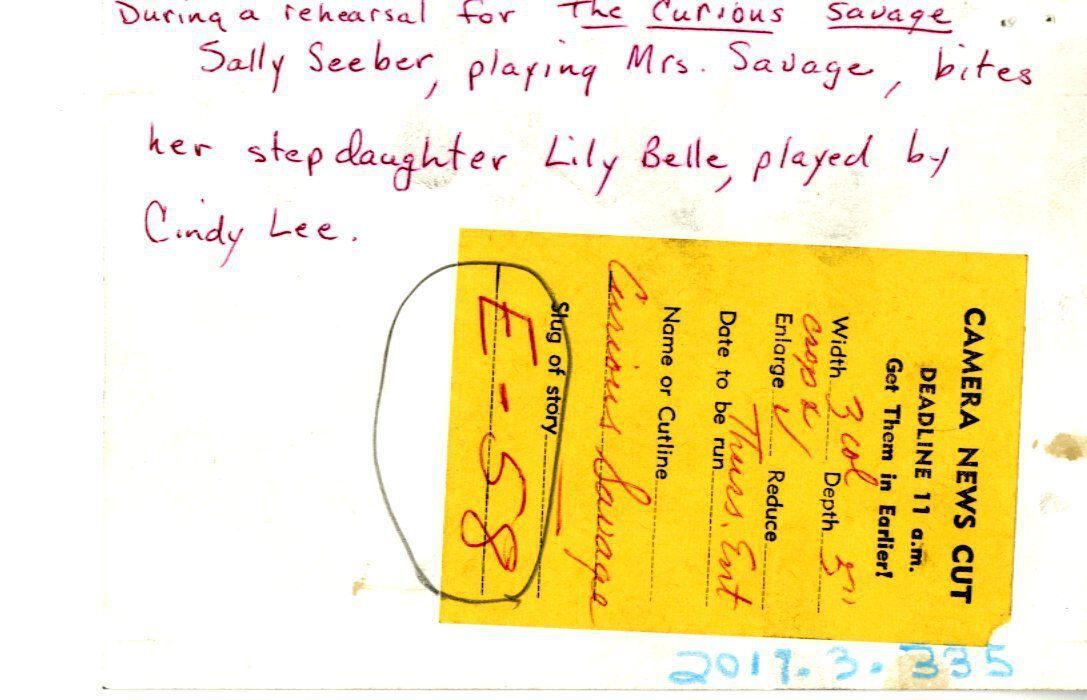 During a rehearsal for The Curious Savage
Sally Seeber, playing Mrs. Savage, bites
her stepdaughter Lily Belle, played by
Cindy Lee.
CAMERA NEWS CUT
DEADLINE 11 a.m.
Get Them in Earlier!
Width 3 col Depth 5"
crop
Enlarge ✓ Reduce
Date to be run Thurs. Ent
Name or Cutline
Curious Savage
Slug of story
E-58
2019.3.335